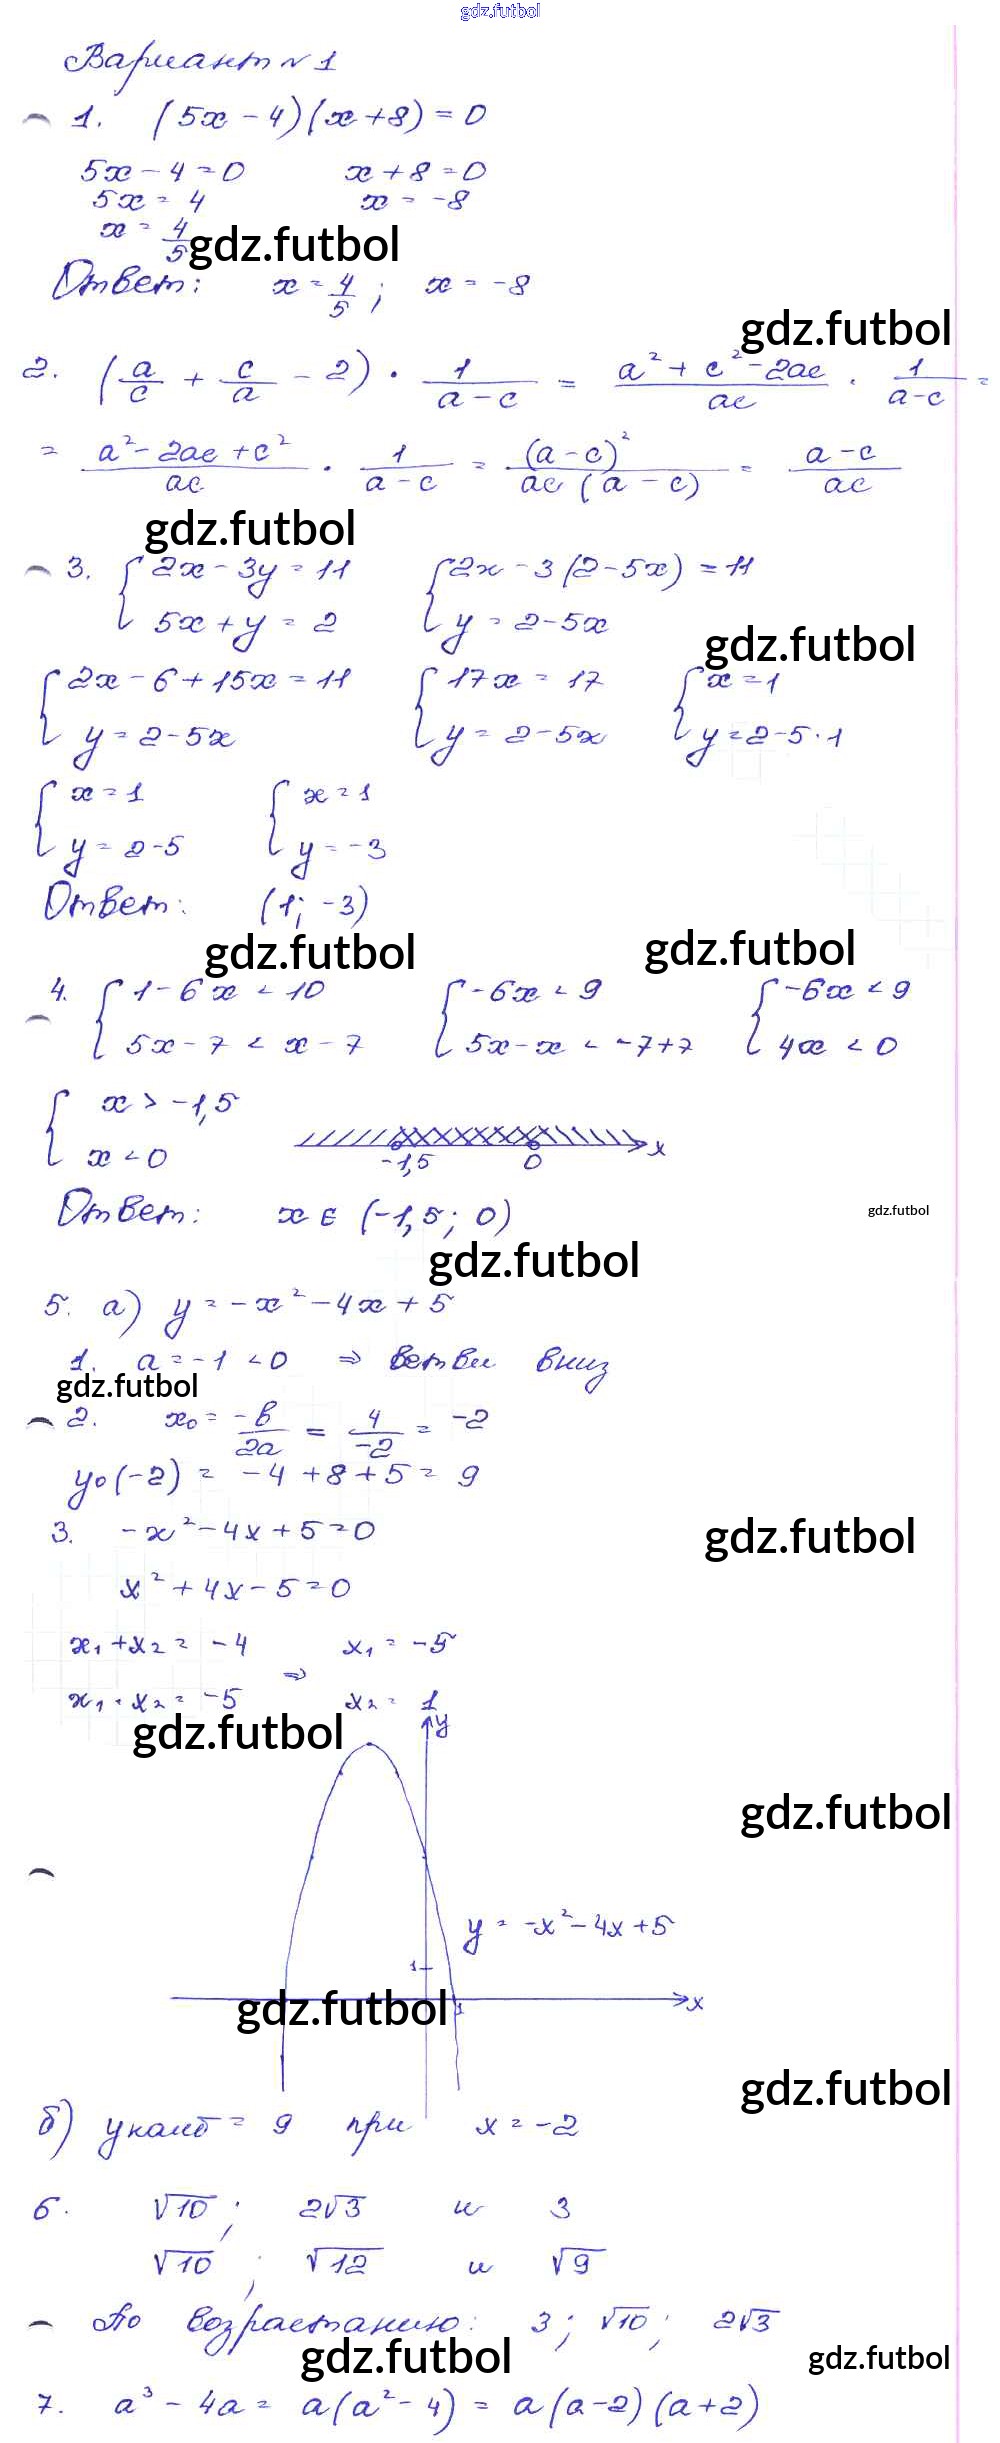 gdz.futbol
Вариант №1
1. (5x - 4)(x + 8) = 0
5x - 4 = 0 x + 8 = 0
5x = 4 x = -8
x = 4/5
gdz.futbol
Ответ: x = 4/5 ; x = -8
gdz.futbol
2. (a/c + c/a - 2) · 1/(a - c) = (a² + c² - 2ac)/ac · 1/(a - c) =
= (a² - 2ac + c²)/ac · 1/(a - c) = (a - c)²/(ac(a - c)) = (a - c)/ac
gdz.futbol
3. { 2x - 3y = 11 { 2x - 3(2 - 5x) = 11
5x + y = 2 y = 2 - 5x
gdz.futbol
{ 2x - 6 + 15x = 11 { 17x = 17 { x = 1
y = 2 - 5x y = 2 - 5x y = 2 - 5 · 1
{ x = 1 { x = 1
y = 2 - 5 y = -3
Ответ: (1; -3)
gdz.futbol gdz.futbol
4. { 1 - 6x < 10 { -6x < 9 { -6x < 9
5x - 7 < x - 7 5x - x < -7 + 7 4x < 0
{ x > -1,5
x < 0
-1,5 0 x
Ответ: x ∈ (-1,5; 0)
gdz.futbol
gdz.futbol
5. а) y = -x² - 4x + 5
1. a = -1 < 0 ⇒ ветви вниз
gdz.futbol
2. x₀ = -b/2a = 4/-2 = -2
y₀(-2) = -4 + 8 + 5 = 9
3. -x² - 4x + 5 = 0
gdz.futbol
x² + 4x - 5 = 0
x₁ + x₂ = -4 x₁ = -5
⇒
x₁ · x₂ = -5 x₂ = 1
gdz.futbol
y
gdz.futbol
y = -x² - 4x + 5
1
gdz.futbol
1
x
gdz.futbol
б) yнаиб = 9 при x = -2
6. √10 ; 2√3 и 3
√10 ; √12 и √9
По возрастанию: 3 ; √10 ; 2√3
gdz.futbol gdz.futbol
7. a³ - 4a = a(a² - 4) = a(a - 2)(a + 2)